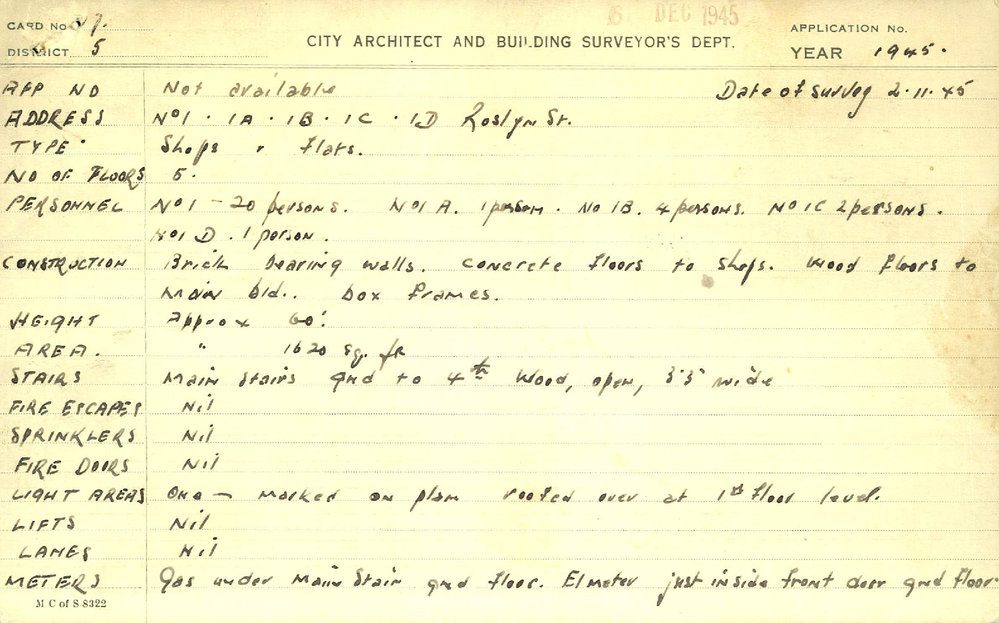 CARD No 7.
6 DEC 1945
APPLICATION No.
DISTRICT 5
CITY ARCHITECT AND BUILDING SURVEYOR'S DEPT.
YEAR 1945.
APP NO Not available Date of survey 2.11.45
ADDRESS No1 . 1A . 1B . 1C . 1D Roslyn St.
TYPE Shops & Flats.
NO OF FLOORS 5.
PERSONNEL No1 - 20 persons. No1A. 1 person. No 1B. 4 persons. No 1C 2 persons.
No1 D. 1 person.
CONSTRUCTION Brick bearing walls. Concrete floors to shops. Wood floors to
main bld.. box frames.
HEIGHT Approx 60'.
AREA. " 1620 sq. ft
STAIRS Main stairs gnd to 4th Wood, open, 3'5" wide
FIRE ESCAPES Nil
SPRINKLERS Nil
FIRE DOORS Nil
LIGHT AREAS One - marked on plan roofed over at 1st floor level.
LIFTS Nil
LANES Nil
METERS Gas under Main Stair gnd floor. El meter just inside front door gnd floor.
M C of S 8322